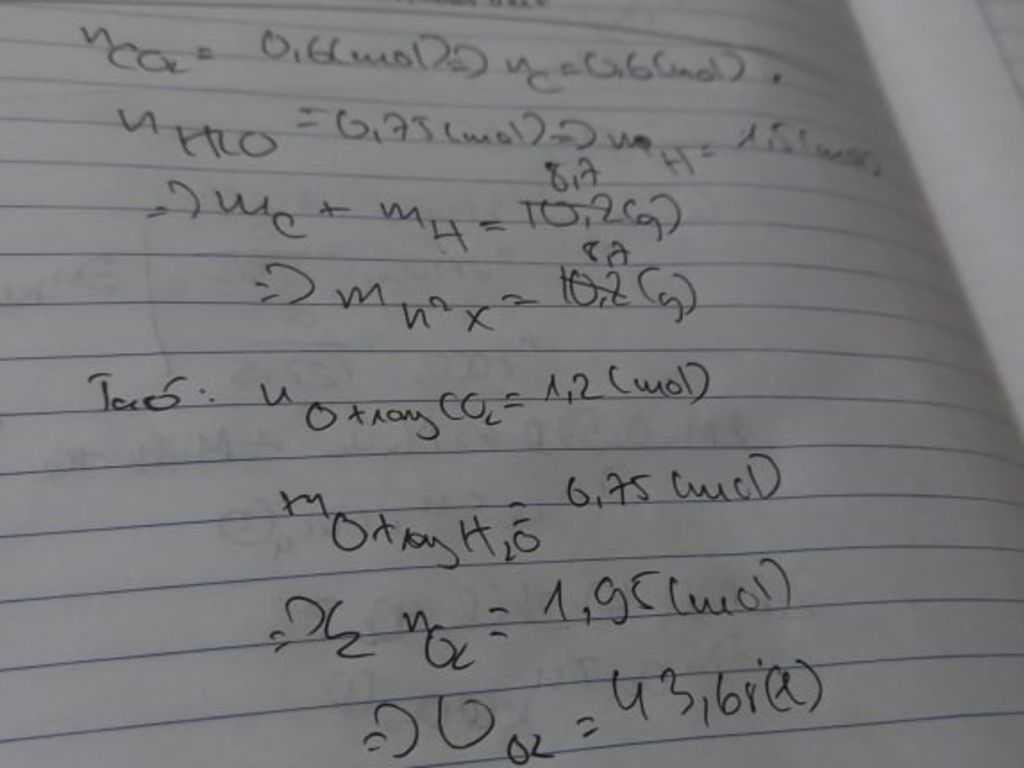 nCO₂ = 0,6(mol) => nC = 0,6(mol).
nH2O = 0,75(mol) => nH = 1,5(mol)
=> mC + mH = 10,2(g) 8,7
=> m h² x = 10,2(g) 8,7
Ta có: n O trong CO₂ = 1,2(mol)
n O trong H₂O = 0,75(mol)
=> Σ nO₂ = 1,95(mol)
=> VO2 = 43,68(l)